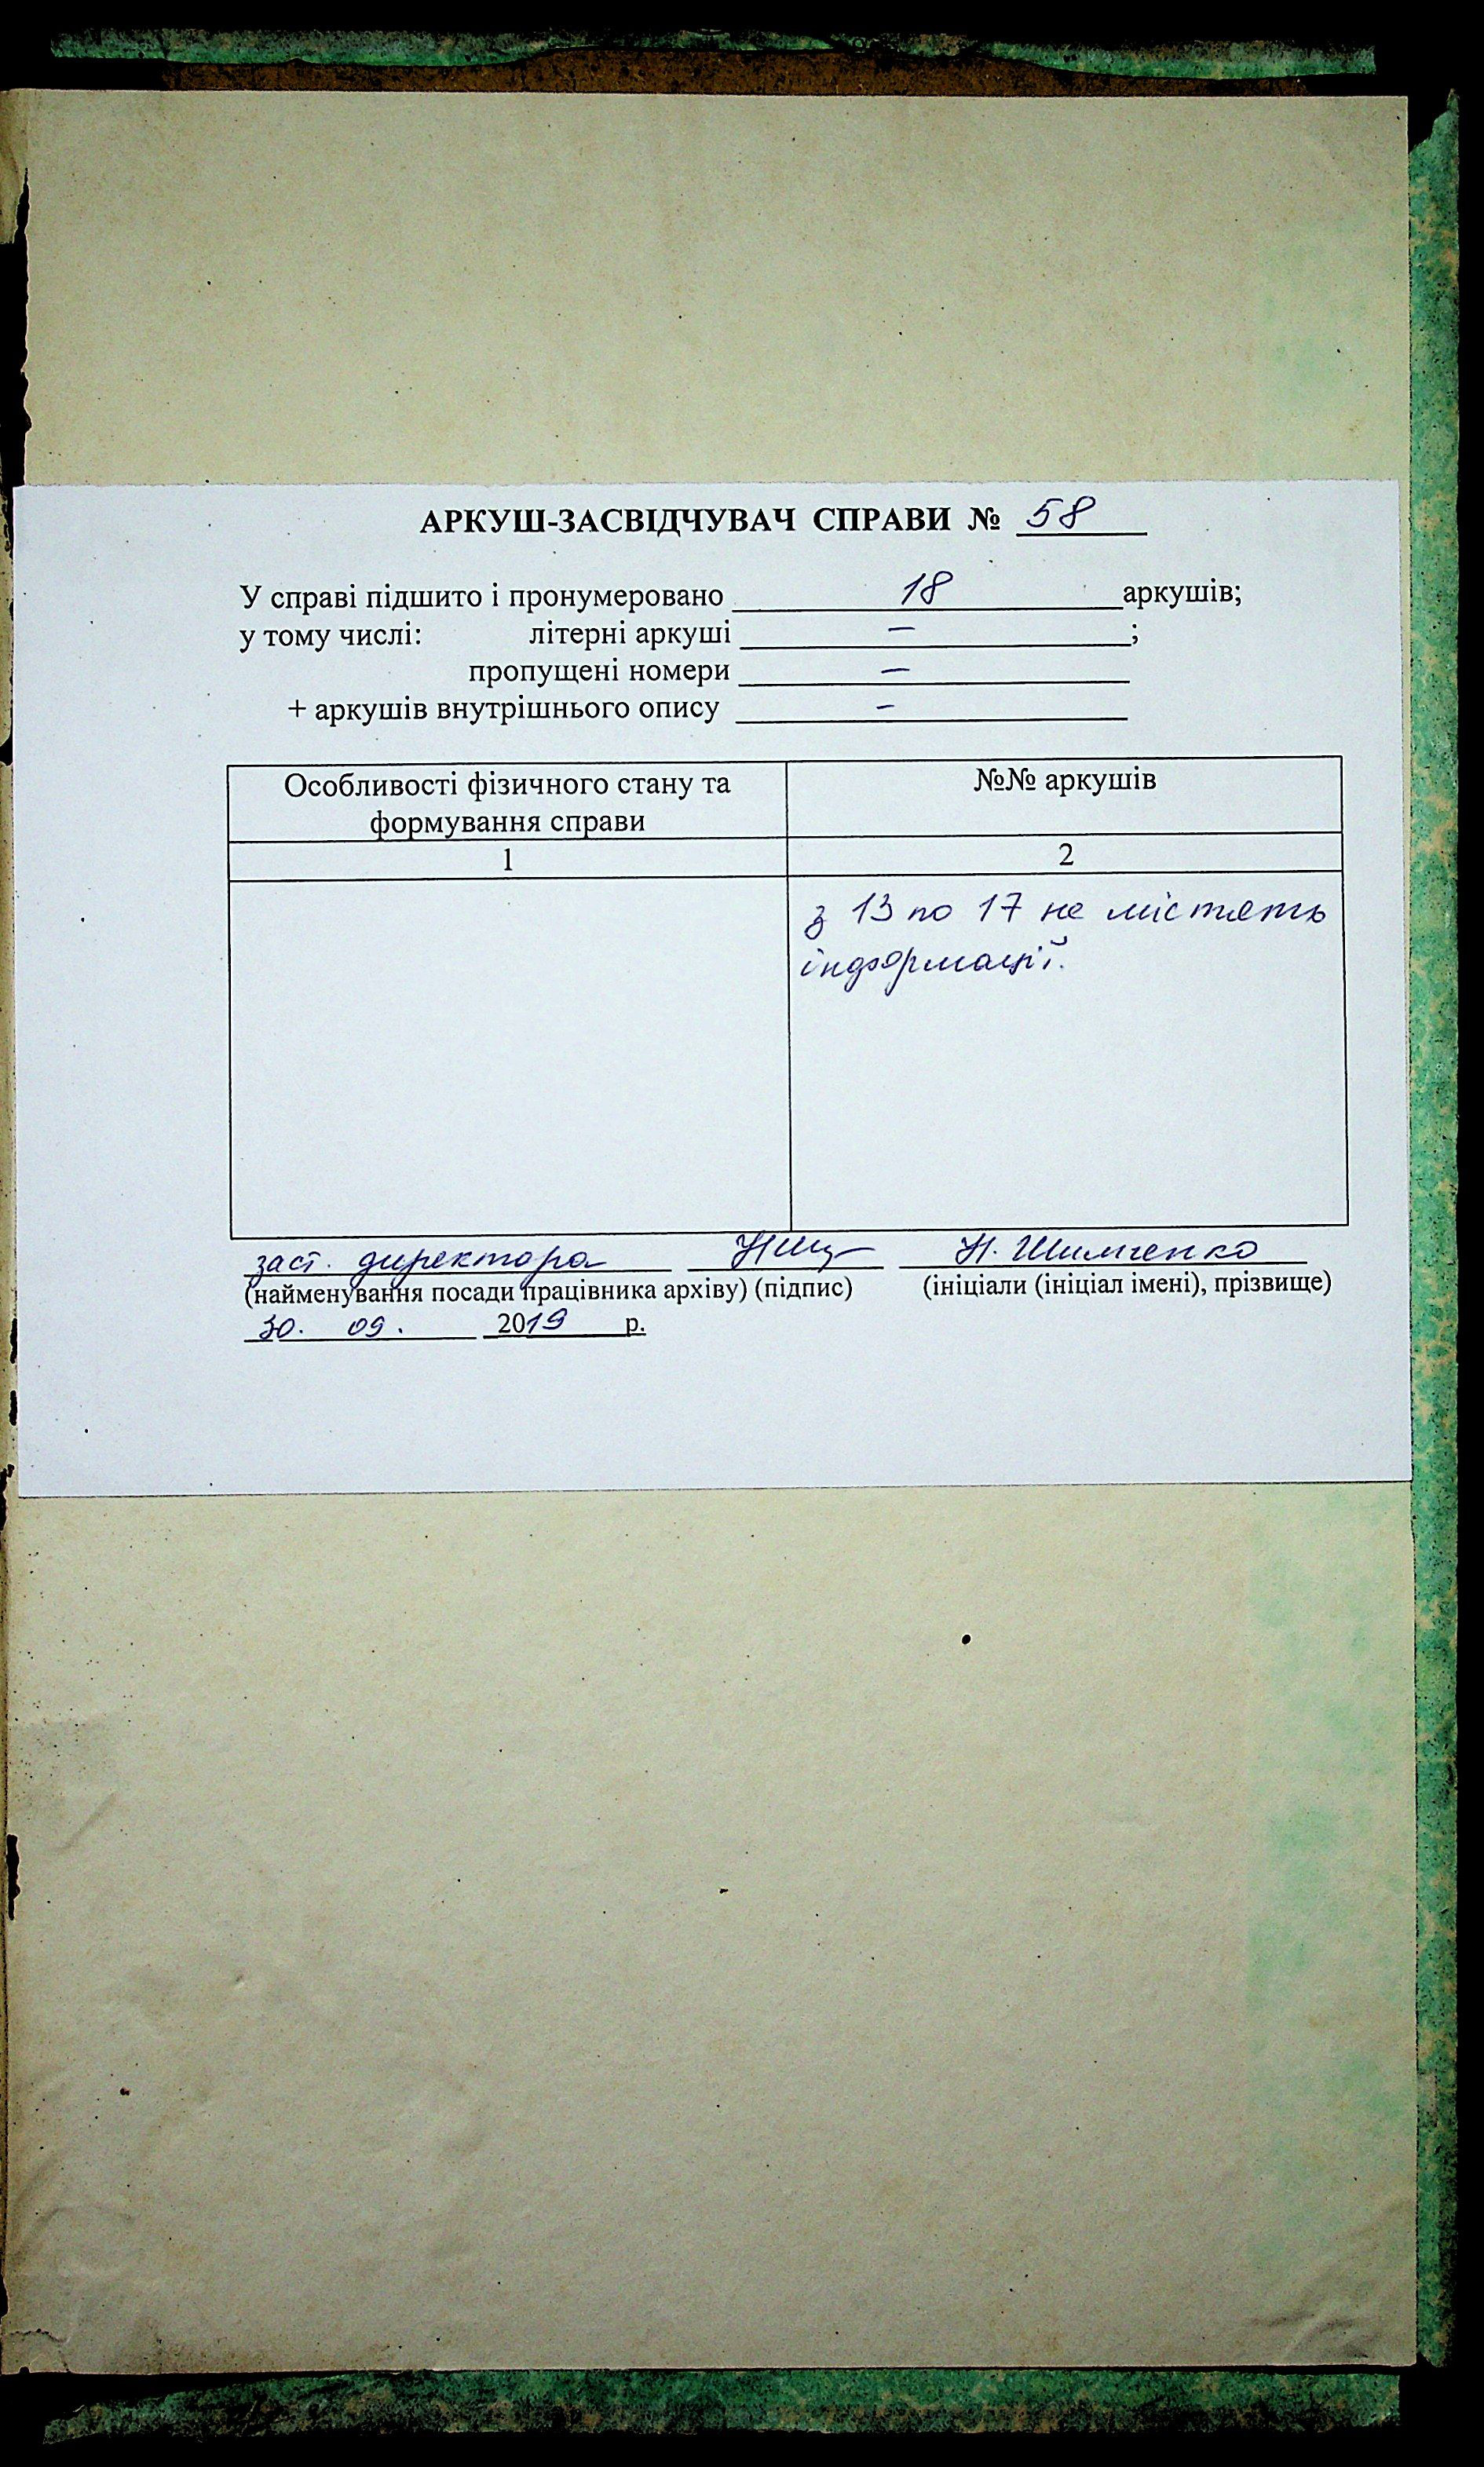 АРКУШ-ЗАСВІДЧУВАЧ СПРАВИ № 58
У справі підшито і пронумеровано 18 аркушів;
у тому числі: літерні аркуші – ;
пропущені номери –
+ аркушів внутрішнього опису –
Особливості фізичного стану та формування справи
№№ аркушів
1
2
з 13 по 17 не містять
інформації.
заст. директора Н. Шимченко
(найменування посади працівника архіву) (підпис) (ініціали (ініціал імені), прізвище)
30. 09. 2019 р.